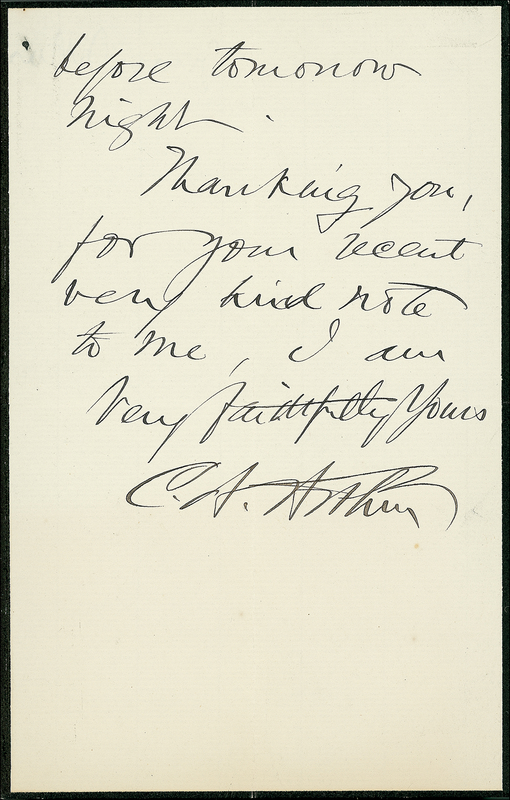 before tomorrow
night.
Thanking you,
for your recent
very kind note
to me, I am
Very faithfully Yours
C. A. Arthur